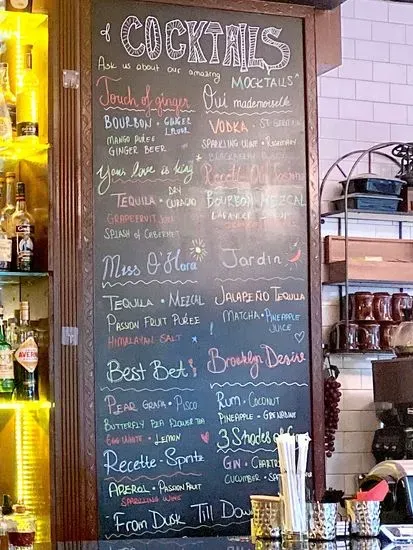 COCKTAILS
Ask us about our amazing MOCKTAILS
Touch of ginger
BOURBON • GINGER LIQUOR
MANGO PURÉE
GINGER BEER
Your love is king
TEQUILA • DRY CURACAO
GRAPEFRUIT
SPLASH OF CABERNET
Miss O'Hara
TEQUILA • MEZCAL
PASSION FRUIT PURÉE
HIMALAYAN SALT
Best Bet!
PEAR GRAPA • PISCO
BUTTERFLY PEA FLOWER TEA
EGG WHITE • LEMON
Recette-Spritz
APEROL • PASSION FRUIT
SPARKLING WINE
From Dusk Till
Oui mademoiselle
VODKA • ST
SPARKLING WINE • ROSEMARY
Recette Old
BOURBON MEZCAL
LAVENDER
Jardin
JALAPEÑO TEQUILA
MATCHA • PINEAPPLE JUICE
Brooklyn Desire
RUM • COCONUT
PINEAPPLE • GRENADINE
3 Shades of
GIN •
CUCUMBER •